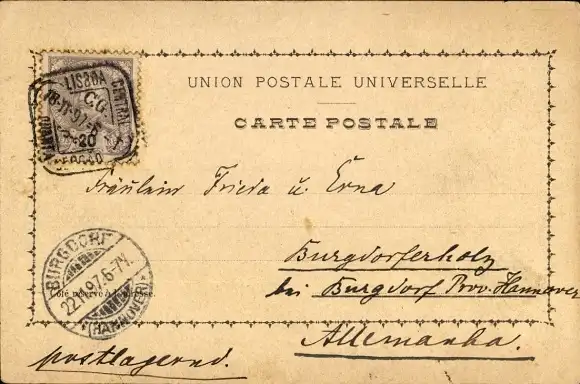 UNION POSTALE UNIVERSELLE
CARTE POSTALE
LISBOA CENTRAL
C.G.
20
Fräulein Frieda u. Erna
Burgdorferholz
bei Burgdorf Prov. Hannover
Allemanha.
postlagernd.
BURGDORF
22.11.97.6-7N.
(HANNOVER)
Côté réservé à l'adresse.